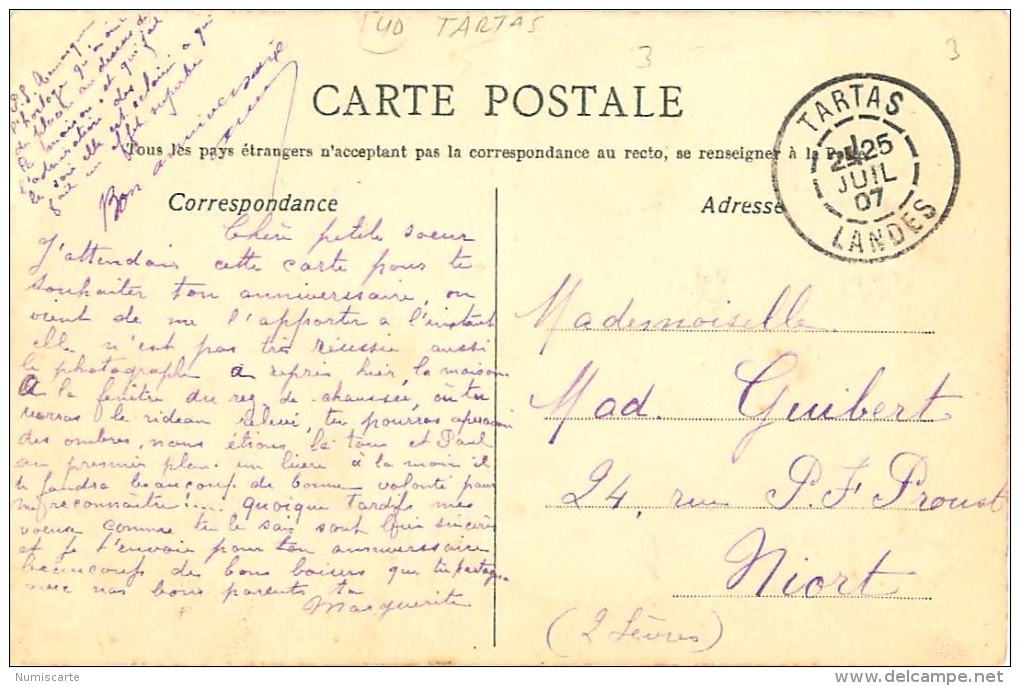 40 TARTAS
3
3
P.S. Remarque
l'horloge qu'on vient
de placer au dessus de
la maison, et qui fait
l'admiration des
soir elle est éclairée ce qui
fait un effet superbe
Bon anniversaire
CARTE POSTALE
Tous les pays étrangers n'acceptant pas la correspondance au recto, se renseigner à la Poste
Correspondance
Adresse
TARTAS
25
JUIL
07
LANDES
Chère petite soeur
J'attendais cette carte pour te
souhaiter ton anniversaire, on
vient de me l'apporter a l'instant
elle n'est pas très réussie aussi
le photographe a repris hier, la maison
A la fenêtre du rez-de-chaussée, où tu
verras le rideau relevé, tu pourras apercevoir
des ombres, nous étions, et Paul
au premier plan. un livre à la main il
te faudra beaucoup de bonne volonté pour
me reconnaitre!.... quoique tardifs mes
voeux comme tu le sais sont bien sincères
et je t'envoie pour ton anniversaire
beaucoup de bons baisers que tu partageras
avec nos bons parents ta
Marguerite
Mademoiselle
Mad. Guibert
24, rue P. F. Proust
Niort
(2 Sèvres)
Numiscarte
delcampe.net